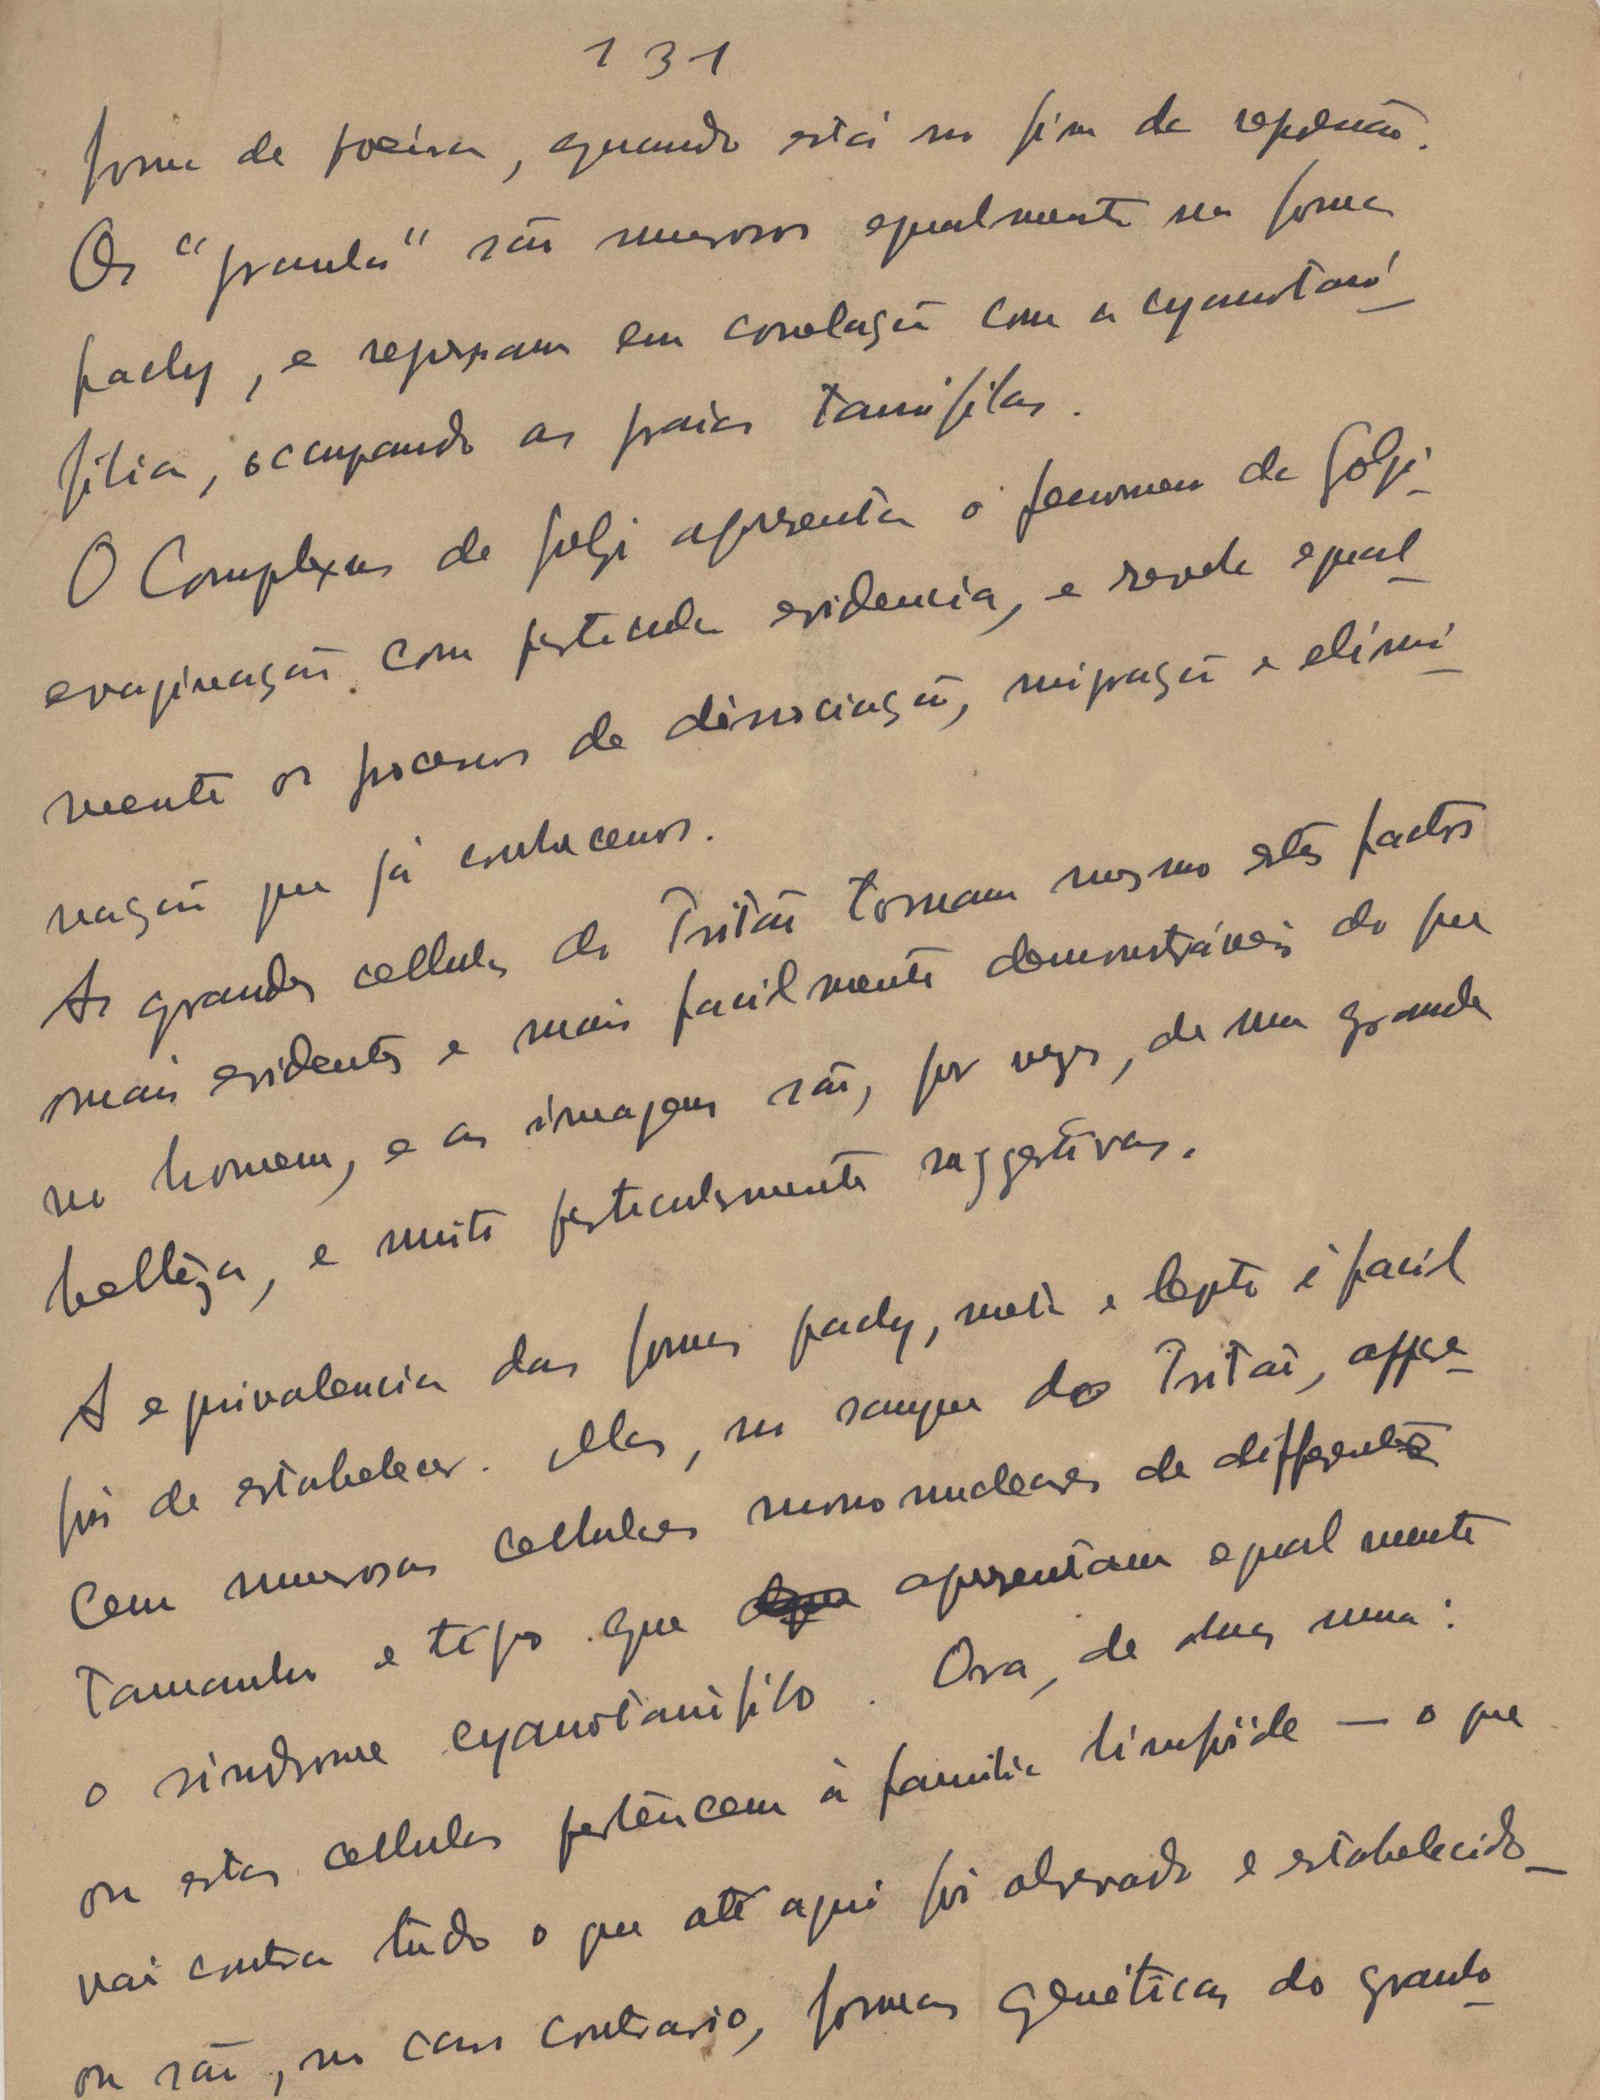 131
forma de poeira, quando está no fim da repleção.
Os "granula" são numerosos egualmente na forma
pachy, e repousam em correlação com a cyanotani-
filia, occupando as praias tanifilas.
O Complexus de Golgi apresenta o fenomeno de Golgi-
evaginação com particular evidencia, e revela egual-
mente os processos de dissociação, migração e elimi-
nação que já conhecemos.
As grandes cellulas do Tritão tornam mesmo estes factos
mais evidentes e mais facilmente demonstráveis do que
no homem, e as imagens são, por vezes, de uma grande
belleza, e muito particularmente suggestivas.
A equivalencia das formas pachy, meta e lepto é facil
pois de estabelecer. Mas, no sangue do Tritão, appare-
cem numerosas cellulas mononucleares de differente
tamanho e tipo que apresentam egualmente
o síndrome cyanotanifilo. Ora, de duas uma:
ou estas cellulas pertencem à familia limfóide — o que
vai contra tudo o que até aqui foi observado e estabelecido—
ou são, no caso contrario, formas genéticas do granulo-